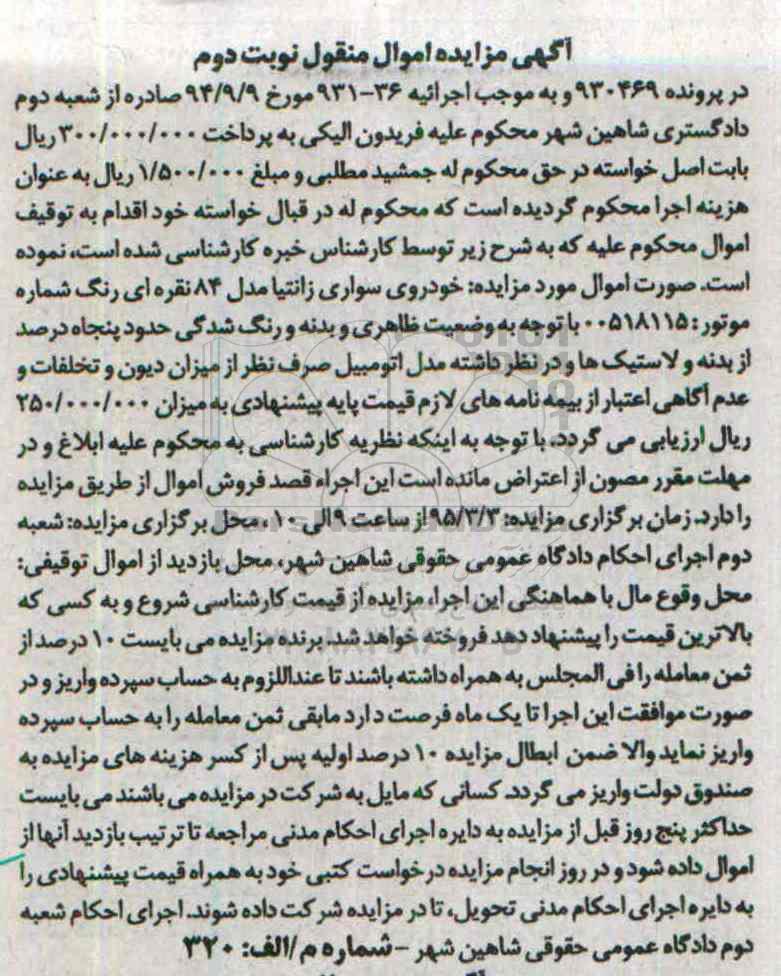 آگهی مزایده اموال منقول نوبت دوم
در پرونده ۹۳۰۴۶۹ و به موجب اجرائیه ۳۶-۹۳۱ مورخ ۹۴/۹/۹ صادره از شعبه دوم
دادگستری شاهین شهر محکوم علیه فریدون الیکی به پرداخت ۳۰۰/۰۰۰/۰۰۰ ریال
بابت اصل خواسته در حق محکوم له جمشید مطلبی و مبلغ ۱/۵۰۰/۰۰۰ ریال به عنوان
هزینه اجرا محکوم گردیده است که محکوم له در قبال خواسته خود اقدام به توقیف
اموال محکوم علیه که به شرح زیر توسط کارشناس خبره کارشناسی شده است، نموده
است. صورت اموال مورد مزایده: خودروی سواری زانتیا مدل ۸۴ نقره ای رنگ شماره
موتور: ۰۰۵۱۸۱۱۵ با توجه به وضعیت ظاهری و بدنه و رنگ شدگی حدود پنجاه درصد
از بدنه و لاستیک ها و در نظر داشته مدل اتومبیل صرف نظر از میزان دیون و تخلفات و
عدم آگاهی اعتبار از بیمه نامه های لازم قیمت پایه پیشنهادی به میزان ۲۵۰/۰۰۰/۰۰۰
ریال ارزیابی می گردد. با توجه به اینکه نظریه کارشناسی به محکوم علیه ابلاغ و در
مهلت مقرر مصون از اعتراض مانده است این اجراء قصد فروش اموال از طریق مزایده
را دارد. زمان برگزاری مزایده: ۹۵/۳/۳ از ساعت ۹ الی ۱۰، محل برگزاری مزایده: شعبه
دوم اجرای احکام دادگاه عمومی حقوقی شاهین شهر، محل بازدید از اموال توقیفی:
محل وقوع مال با هماهنگی این اجرا، مزایده از قیمت کارشناسی شروع و به کسی که
بالاترین قیمت را پیشنهاد دهد فروخته خواهد شد. برنده مزایده می بایست ۱۰ درصد از
ثمن معامله را فی المجلس به همراه داشته باشند تا عنداللزوم به حساب سپرده واریز و در
صورت موافقت این اجرا تا یک ماه فرصت دارد مابقی ثمن معامله را به حساب سپرده
واریز نماید والا ضمن ابطال مزایده ۱۰ درصد اولیه پس از کسر هزینه های مزایده به
صندوق دولت واریز می گردد. کسانی که مایل به شرکت در مزایده می باشند می بایست
حداکثر پنج روز قبل از مزایده به دایره اجرای احکام مدنی مراجعه تا ترتیب بازدید آنها از
اموال داده شود و در روز انجام مزایده درخواست کتبی خود به همراه قیمت پیشنهادی را
به دایره اجرای احکام مدنی تحویل، تا در مزایده شرکت داده شوند. اجرای احکام شعبه
دوم دادگاه عمومی حقوقی شاهین شهر - شماره م/الف: ۳۲۰